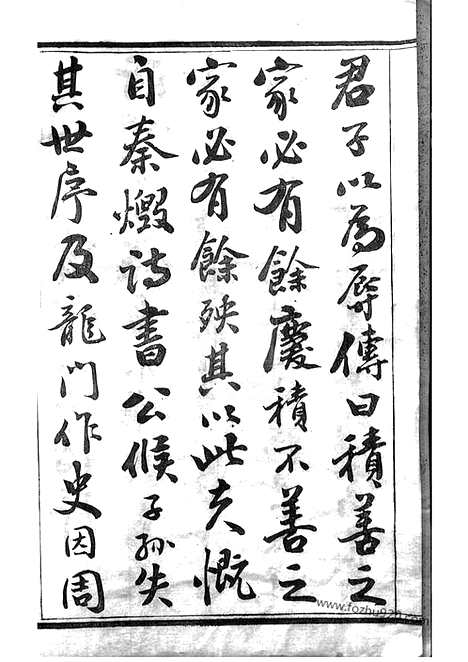 君子以為辱傳曰積善之
家必有餘慶積不善之
家必有餘殃其以此夫慨
自秦燬詩書公候子孫失
其世序及龍门作史因周
www.fozhu920.com